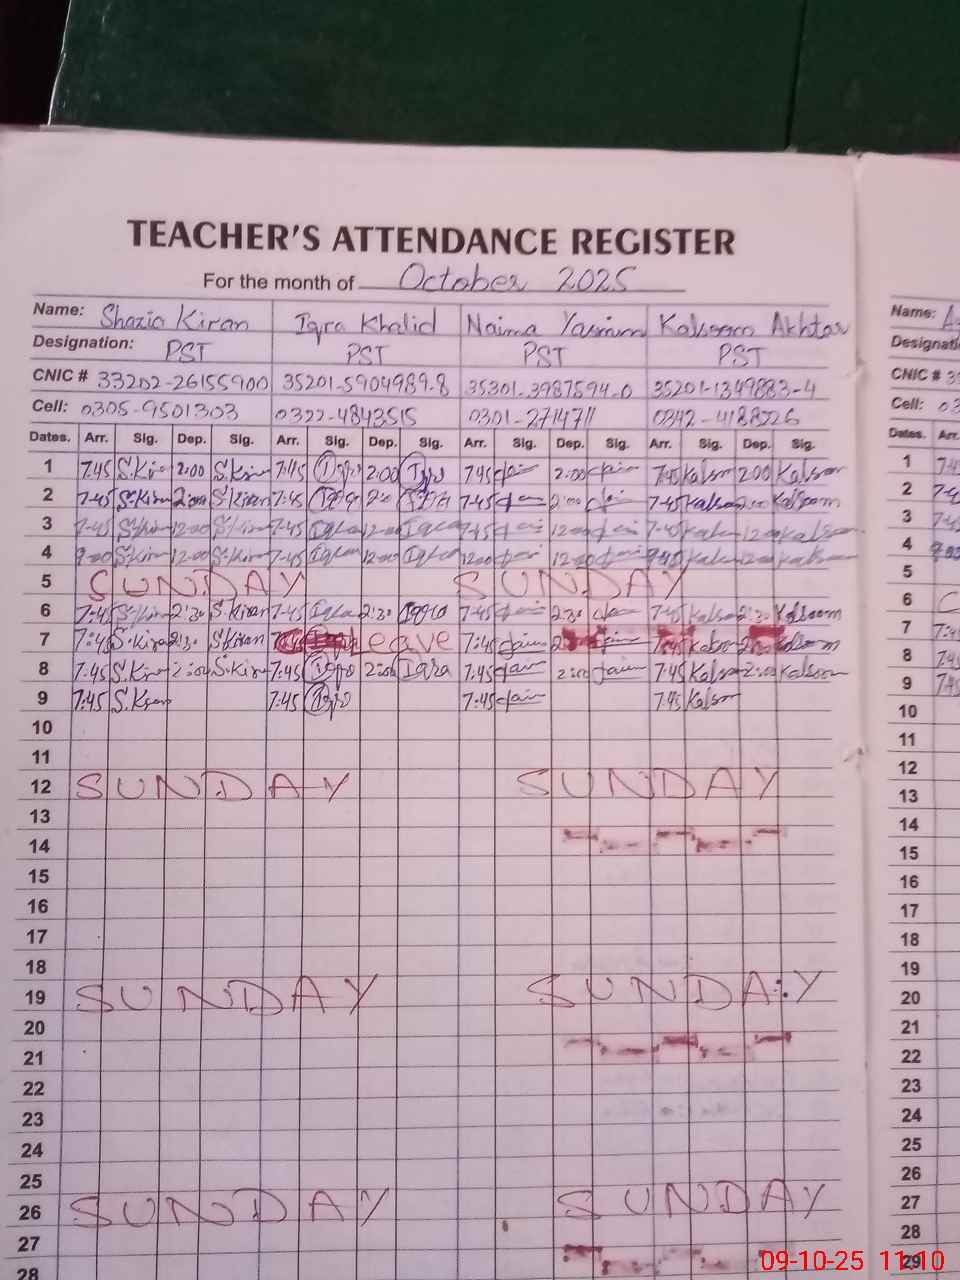 TEACHER'S ATTENDANCE REGISTER
For the month of October 2025
Name: Shazia Kiran Iqra Khalid Naima Yasmin Kalsoom Akhtar Name:
Designation: PST PST PST PST
CNIC # 33202-26155900 35201-5904989-8 35301-3987594-0 35201-1349883-4 CNIC #
Cell: 0305-9501303 0322-4843515 0301-2714711 0342-4188226 Cell:
Dates. Arr. Sig. Dep. Sig. Arr. Sig. Dep. Sig. Arr. Sig. Dep. Sig. Arr. Sig. Dep. Sig. Dates. Arr.
1 7:45 S.Kiran 2:00 S.Kiran Iqra 2:00 Iqra 7:45 2:00 7:45 Kalsoom 2:00 Kalsoom 1
2 7:45 S.Kiran 2:00 S.Kiran 7:45 Iqra 2:00 Iqra 7:45 2:00 7:45 Kalsoom 2:00 Kalsoom 2
3 7:45 S.Kiran 12:00 S.Kiran 7:45 Iqra 12:00 Iqra 7:45 12:00 7:45 Kalsoom 12:00 Kalsoom 3
4 9:00 S.Kiran 12:00 S.Kiran 7:45 Iqra 12:00 Iqra 12:00 12:00 Kalsoom 12:00 Kalsoom 4
5 SUNDAY SUNDAY 5
6 7:45 S.Kiran 2:30 S.Kiran 7:45 Iqra 2:30 Iqra 7:45 2:30 7:45 Kalsoom 2:30 Kalsoom 6
7 7:45 S.Kiran 2:30 S.Kiran Leave 7:45 7:45 Kalsoom Kalsoom 7
8 7:45 S.Kiran 2:00 S.Kiran 7:45 Iqra 2:00 Iqra 7:45 2:00 7:45 Kalsoom 2:00 Kalsoom 8
9 7:45 S.Kiran 7:45 Iqra 7:45 7:45 Kalsoom 9
10 10
11 11
12 SUNDAY SUNDAY 12
13 13
14 14
15 15
16 16
17 17
18 18
19 SUNDAY SUNDAY 19
20 20
21 21
22 22
23 23
24 24
25 25
26 SUNDAY SUNDAY 26
27 27
28 28
29
09-10-25 11:10